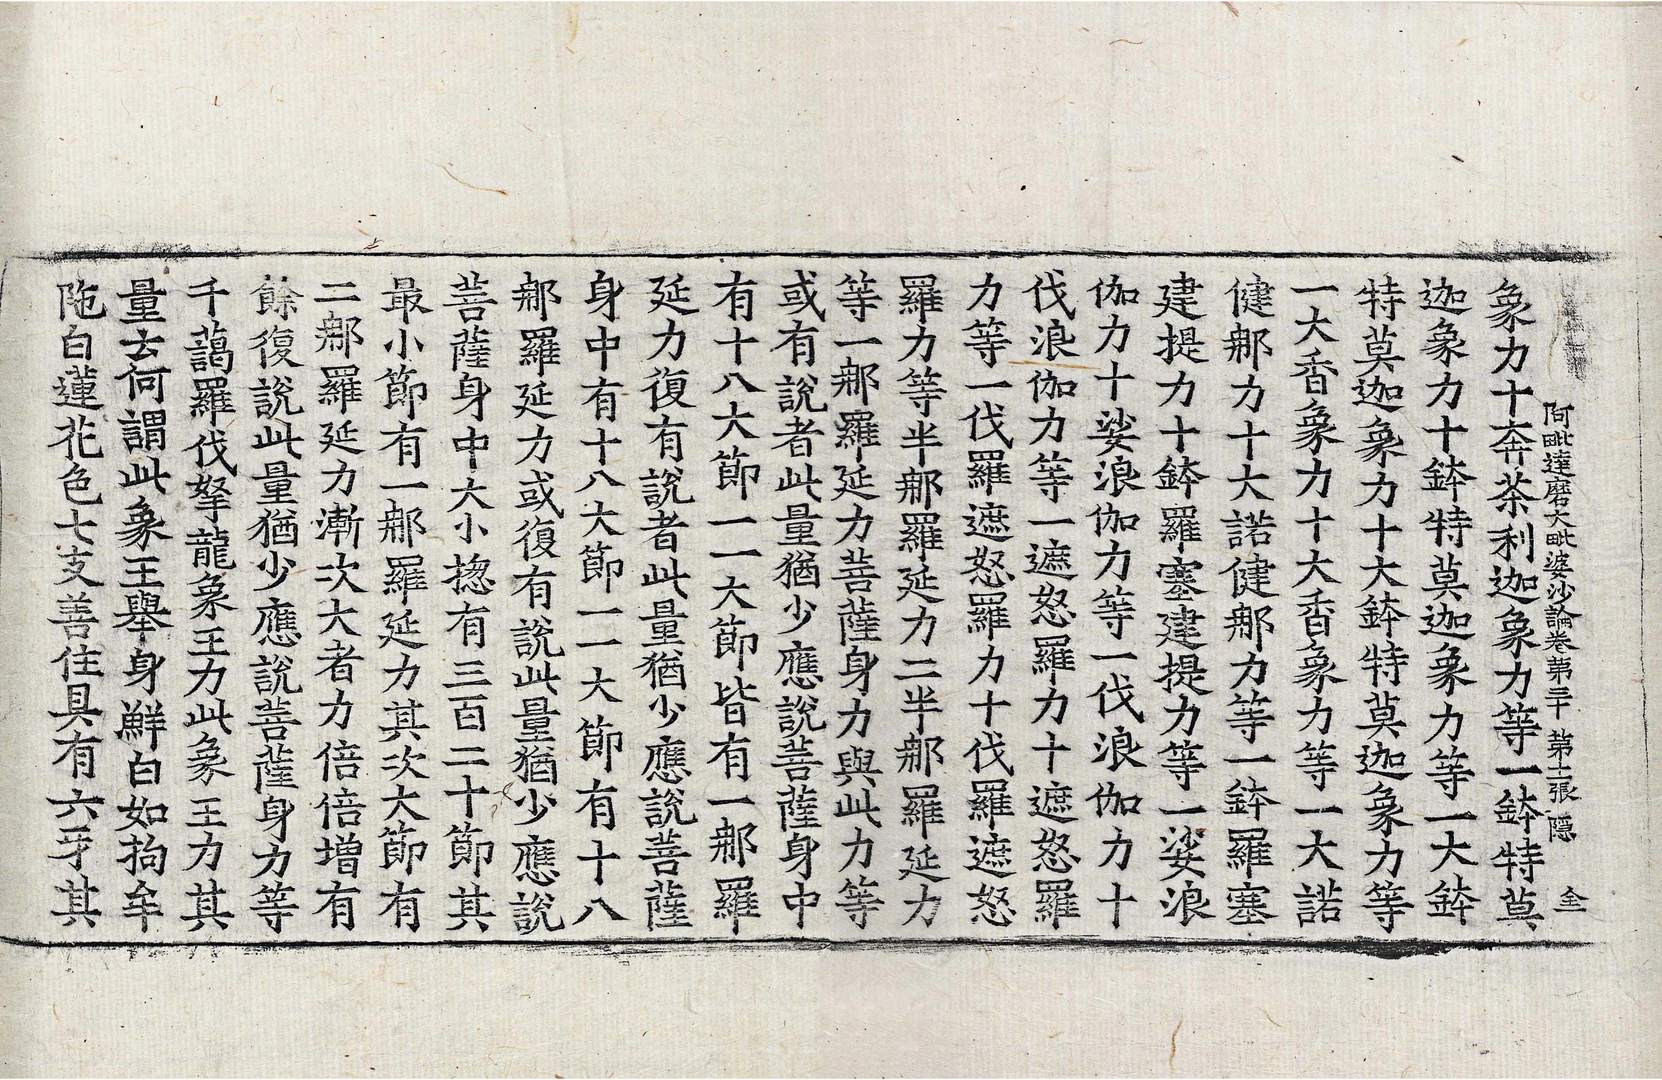 阿毗達磨大毗婆沙論卷第三十 第張 隱 全
象力十奔茶利迦象力等一鉢特莫
迦象力十鉢特莫迦象力等一大鉢
特莫迦象力十大鉢特莫迦象力等
一大香象力十大香象力等一大諾
健那力十大諾健那力等一鉢羅塞
建提力十鉢羅塞建提力等一娑浪
伽力十娑浪伽力等一伐浪伽力十
伐浪伽力等一遮怒羅力十遮怒羅
力等一伐羅遮怒羅力十伐羅遮怒
羅力等半那羅延力二半那羅延力
等一那羅延力菩薩身力與此力等
或有說者此量猶少應說菩薩身中
有十八大節一一大節皆有一那羅
延力復有說者此量猶少應說菩薩
身中有十八大節一一大節有十八
那羅延力或復有說此量猶少應說
菩薩身中大小揔有三百二十節其
最小節有一那羅延力其次大節有
二那羅延力漸次大者力倍倍增有
餘復說此量猶少應說菩薩身力等
千藹羅伐拏龍象王力此象王力其
量云何謂此象王舉身鮮白如拘牟
陁白蓮花色七支善住具有六牙其